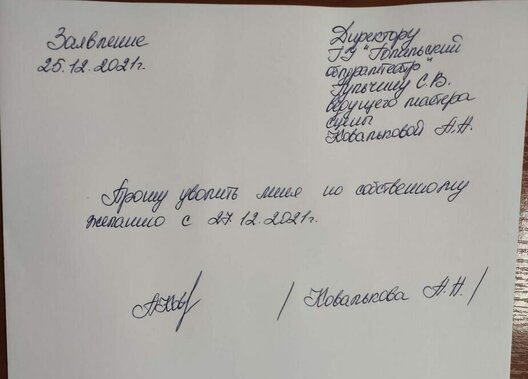 Заявление
25.12.2021г.
Директору
ГУ "Гомельский
облдрамтеатр"
Лупьчину С.В.
ведущего мастера
сцены
Ковальковой А.Н.
Прошу уволить меня по собственному
желанию с 27.12.2021г.
АКов/
/Ковалькова А.Н./